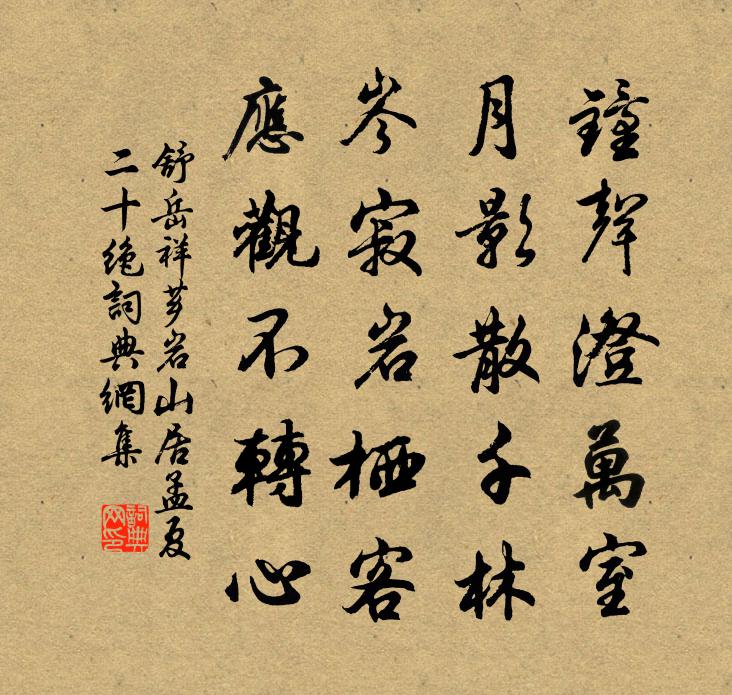 鐘聲澄萬室
月影散千林
岑寂岩栖客
應觀不轉心
舒岳祥芗岩山居孟夏
二十絶詞典網集
詞典网印